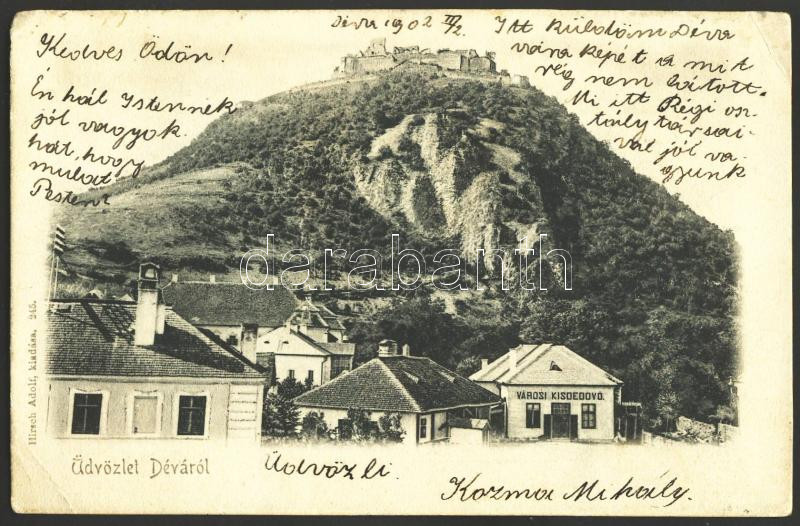 Déva 1902 III/2.
Kedves Ödön!
Én hál Istennek
jól vagyok.
hát, hogy
mulat
Pesten?
Itt küldöm Déva
vára képét a mit
rég nem látott.
Mi itt Régi osz-
tály társai-
val jól va-
gyunk
darabanth
VÁROSI KISDEDOVÓ.
Hirsch Adolf, kiadása. 245.
Üdvözlet Déváról
Üdvözli.
Kozma Mihály.